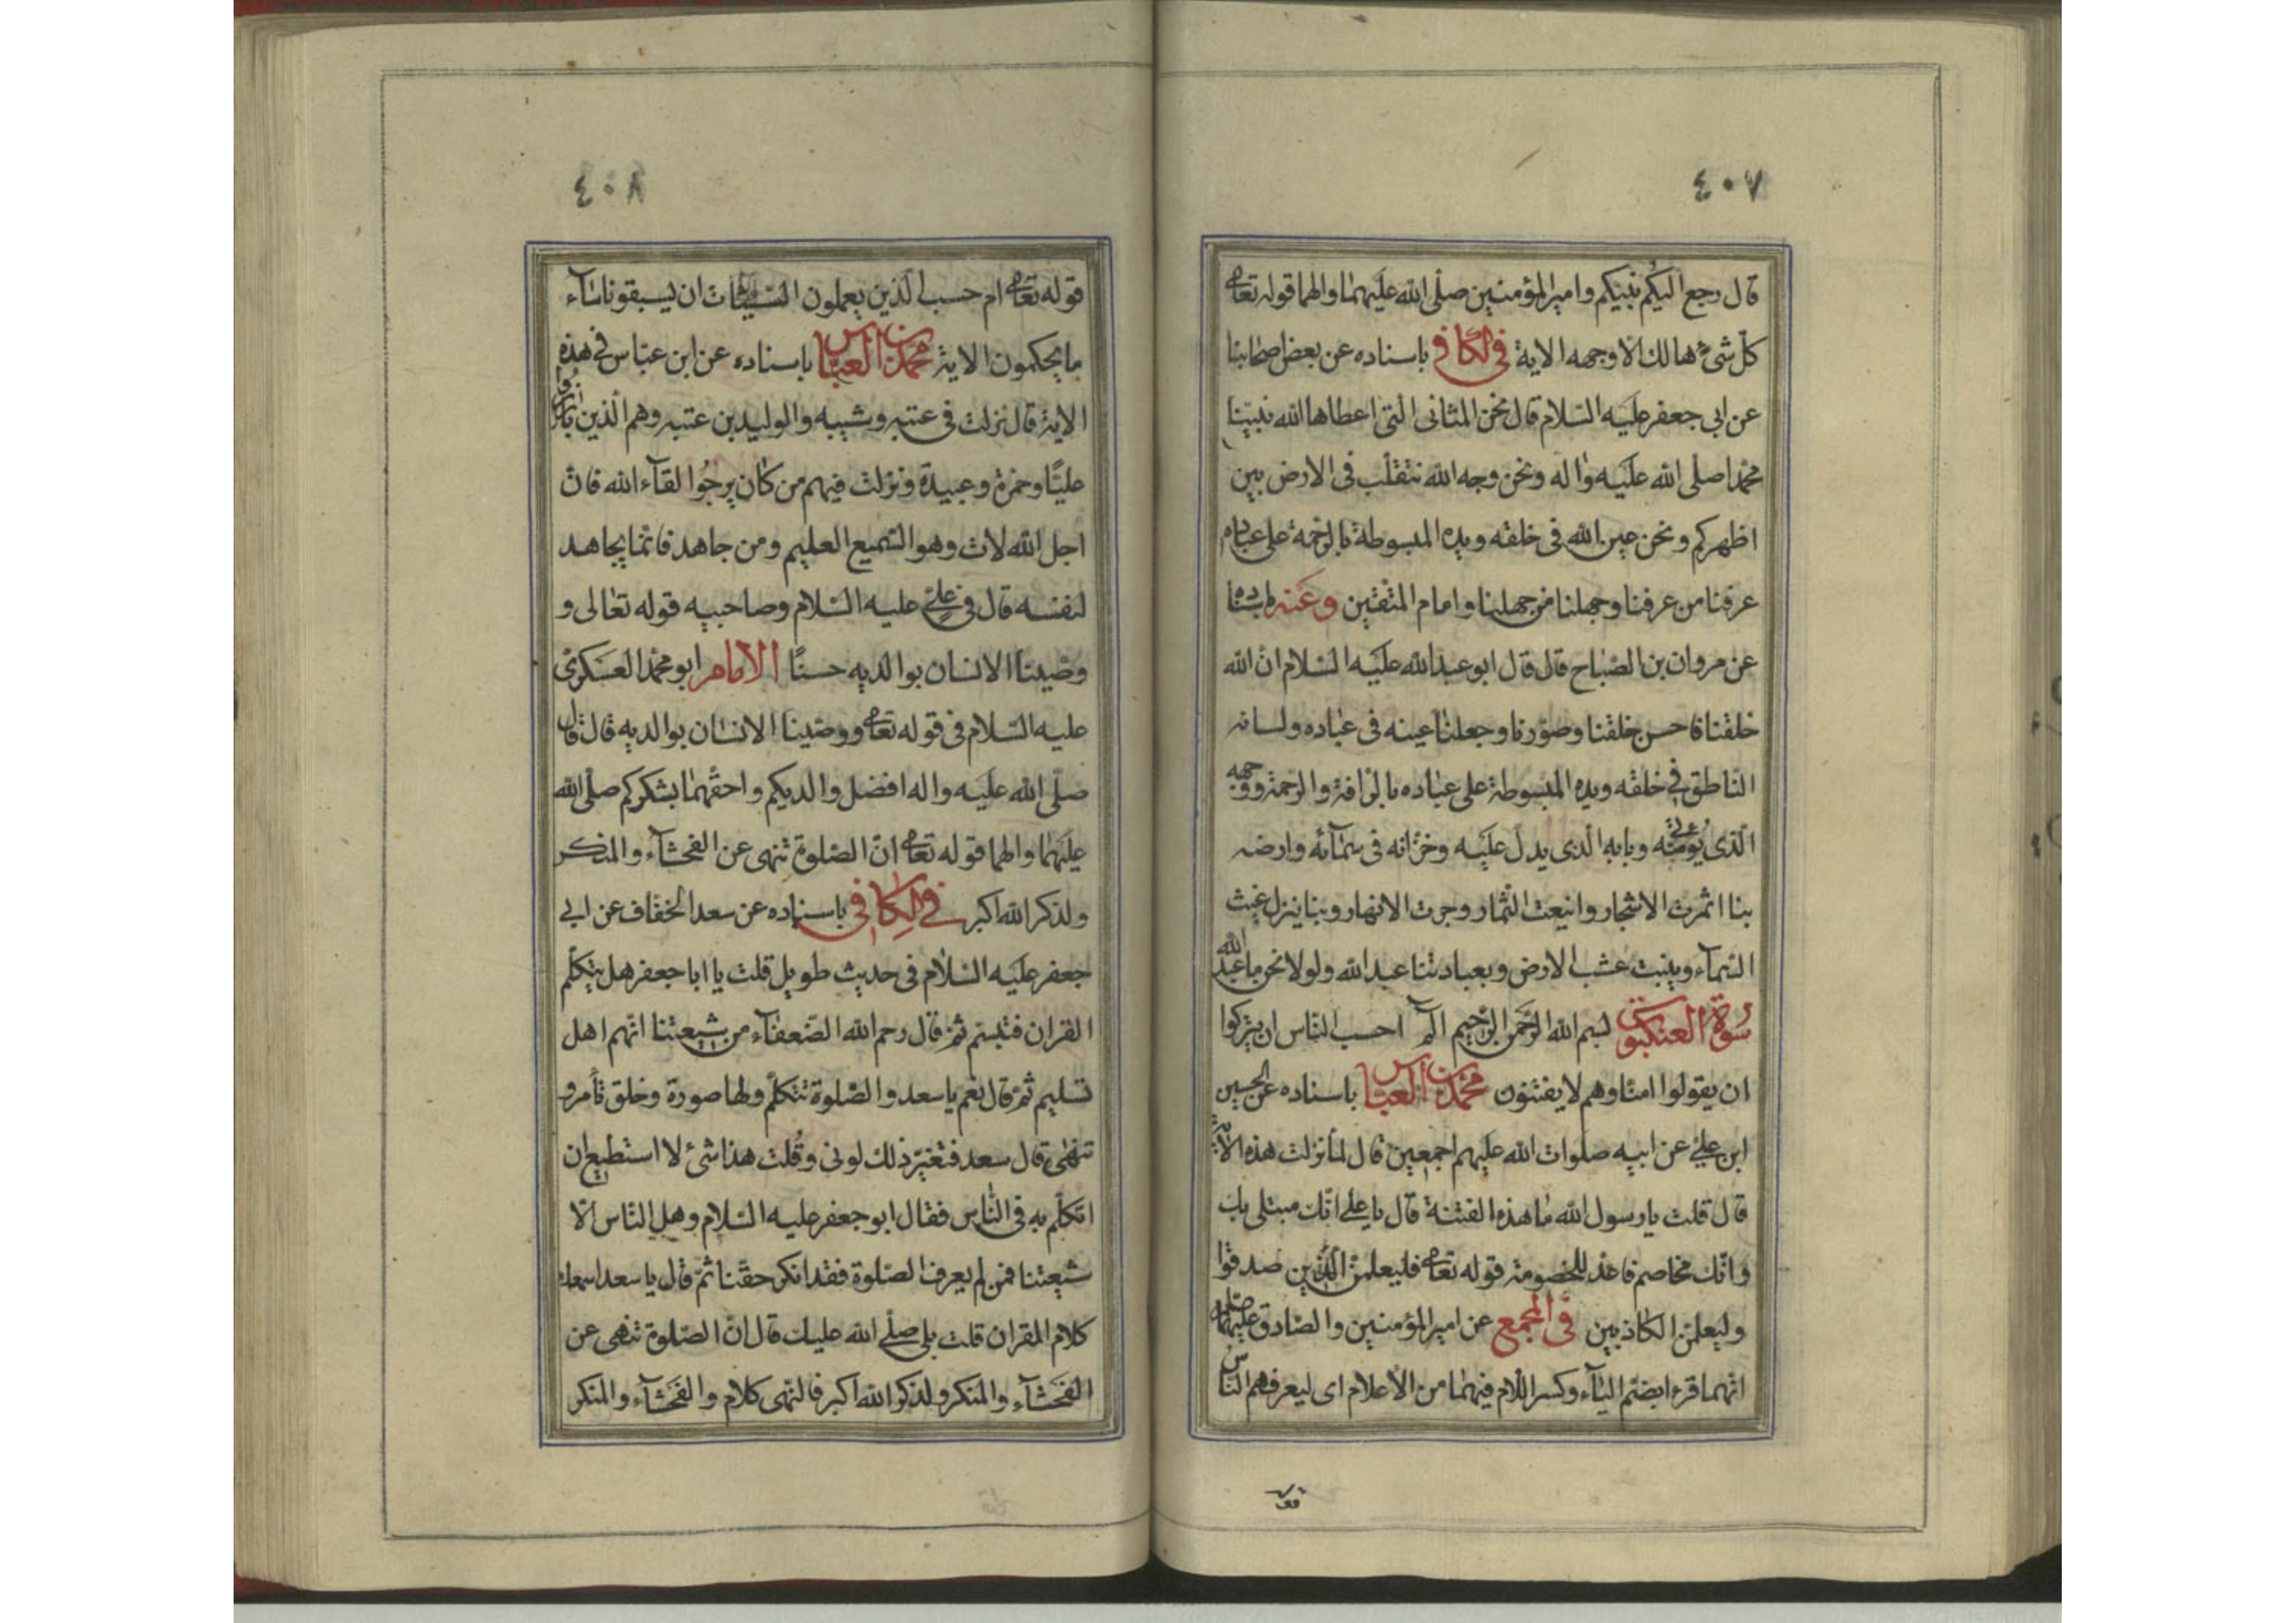 ٤٠٧
قال رجع اليكم نبيكم وامير المؤمنين صلى الله عليهما والهما قوله تعالى
كل شئ هالك الا وجهه الاية في الكافي باسناده عن بعض اصحابنا
عن ابي جعفر عليه السلام قال نحن المثاني التي اعطاها الله نبينا
محمدا صلى الله عليه واله ونحن وجه الله نتقلب في الارض بين
اظهركم ونحن عين الله في خلقه ويده المبسوطة بالرحمة على عباده
عرفنا من عرفنا وجهلنا من جهلنا وامام المتقين وعنه باسناده
عن مروان بن الصباح قال قال ابو عبد الله عليه السلام ان الله
خلقنا فاحسن خلقنا وصورنا وجعلنا عينه في عباده ولسانه
الناطق في خلقه ويده المبسوطة على عباده بالرافة والرحمة ووجهه
الذي يؤتى منه وبابه الذي يدل عليه وخزانه في سمائه وارضه
بنا اثمرت الاشجار وانيعت الثمار وجرت الانهار وبنا ينزل غيث
السماء وينبت عشب الارض وبعبادتنا عبد الله ولولا نحن ما عبد الله
سورة العنكبوت بسم الله الرحمن الرحيم الم احسب الناس ان يتركوا
ان يقولوا امنا وهم لا يفتنون محمد بن العباس باسناده عن الحسين
ابن علي عن ابيه صلوات الله عليهم اجمعين قال لما نزلت هذه الاية
قال قلت يا رسول الله ما هذه الفتنة قال يا علي انك مبتلى بك
وانك مخاصم فاعد للخصومة قوله تعالى فليعلمن الذين صدقوا
وليعلمن الكاذبين في المجمع عن امير المؤمنين والصادق عليهما
انهما قرءا بضم الياء وكسر اللام فيهما من الاعلام اى ليعرفهم الناس
٤٠٨
قوله تعالى ام حسب الذين يعملون السيئات ان يسبقونا ساء
ما يحكمون الاية محمد بن العباس باسناده عن ابن عباس في هذه
الاية قال نزلت في عتبه وشيبه والوليد بن عتبه وهم الذين بارزوا
عليا وحمزة وعبيدة ونزلت فيهم من كان يرجوا لقاء الله فان
اجل الله لات وهو السميع العليم ومن جاهد فانما يجاهد
لنفسه قال في علي عليه السلام وصاحبيه قوله تعالى و
وصينا الانسان بوالديه حسنا الامام ابو محمد العسكري
عليه السلام في قوله تعالى ووصينا الانسان بوالديه قال قال
صلى الله عليه واله افضل والديكم واحقهما بشكركم صلى الله
عليهما والهما قوله تعالى ان الصلوة تنهى عن الفحشاء والمنكر
ولذكر الله اكبر في الكافي باسناده عن سعد الخفاف عن ابي
جعفر عليه السلام في حديث طويل قلت يا ابا جعفر هل يتكلم
القران فتبسم ثم قال رحم الله الضعفاء من شيعتنا انهم اهل
تسليم ثم قال نعم يا سعد والصلوة تتكلم ولها صورة وخلق تأمر و
تنهى قال سعد فتغير ذلك لوني وقلت هذا شئ لا استطيع ان
اتكلم به في الناس فقال ابو جعفر عليه السلام وهل الناس الا
شيعتنا فمن لم يعرف الصلوة فقد انكر حقنا ثم قال يا سعد اسمعك
كلام القران قلت بلى صلى الله عليك قال ان الصلوة تنهى عن
الفحشاء والمنكر ولذكر الله اكبر فالنهى كلام والفحشاء والمنكر